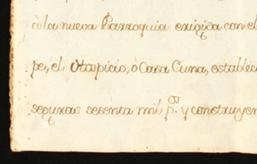 à la nueva Parroquia erigida con el
pe, el Ospicio, ò Casa Cuna, establec
seguras sesenta mil p.s y construyen